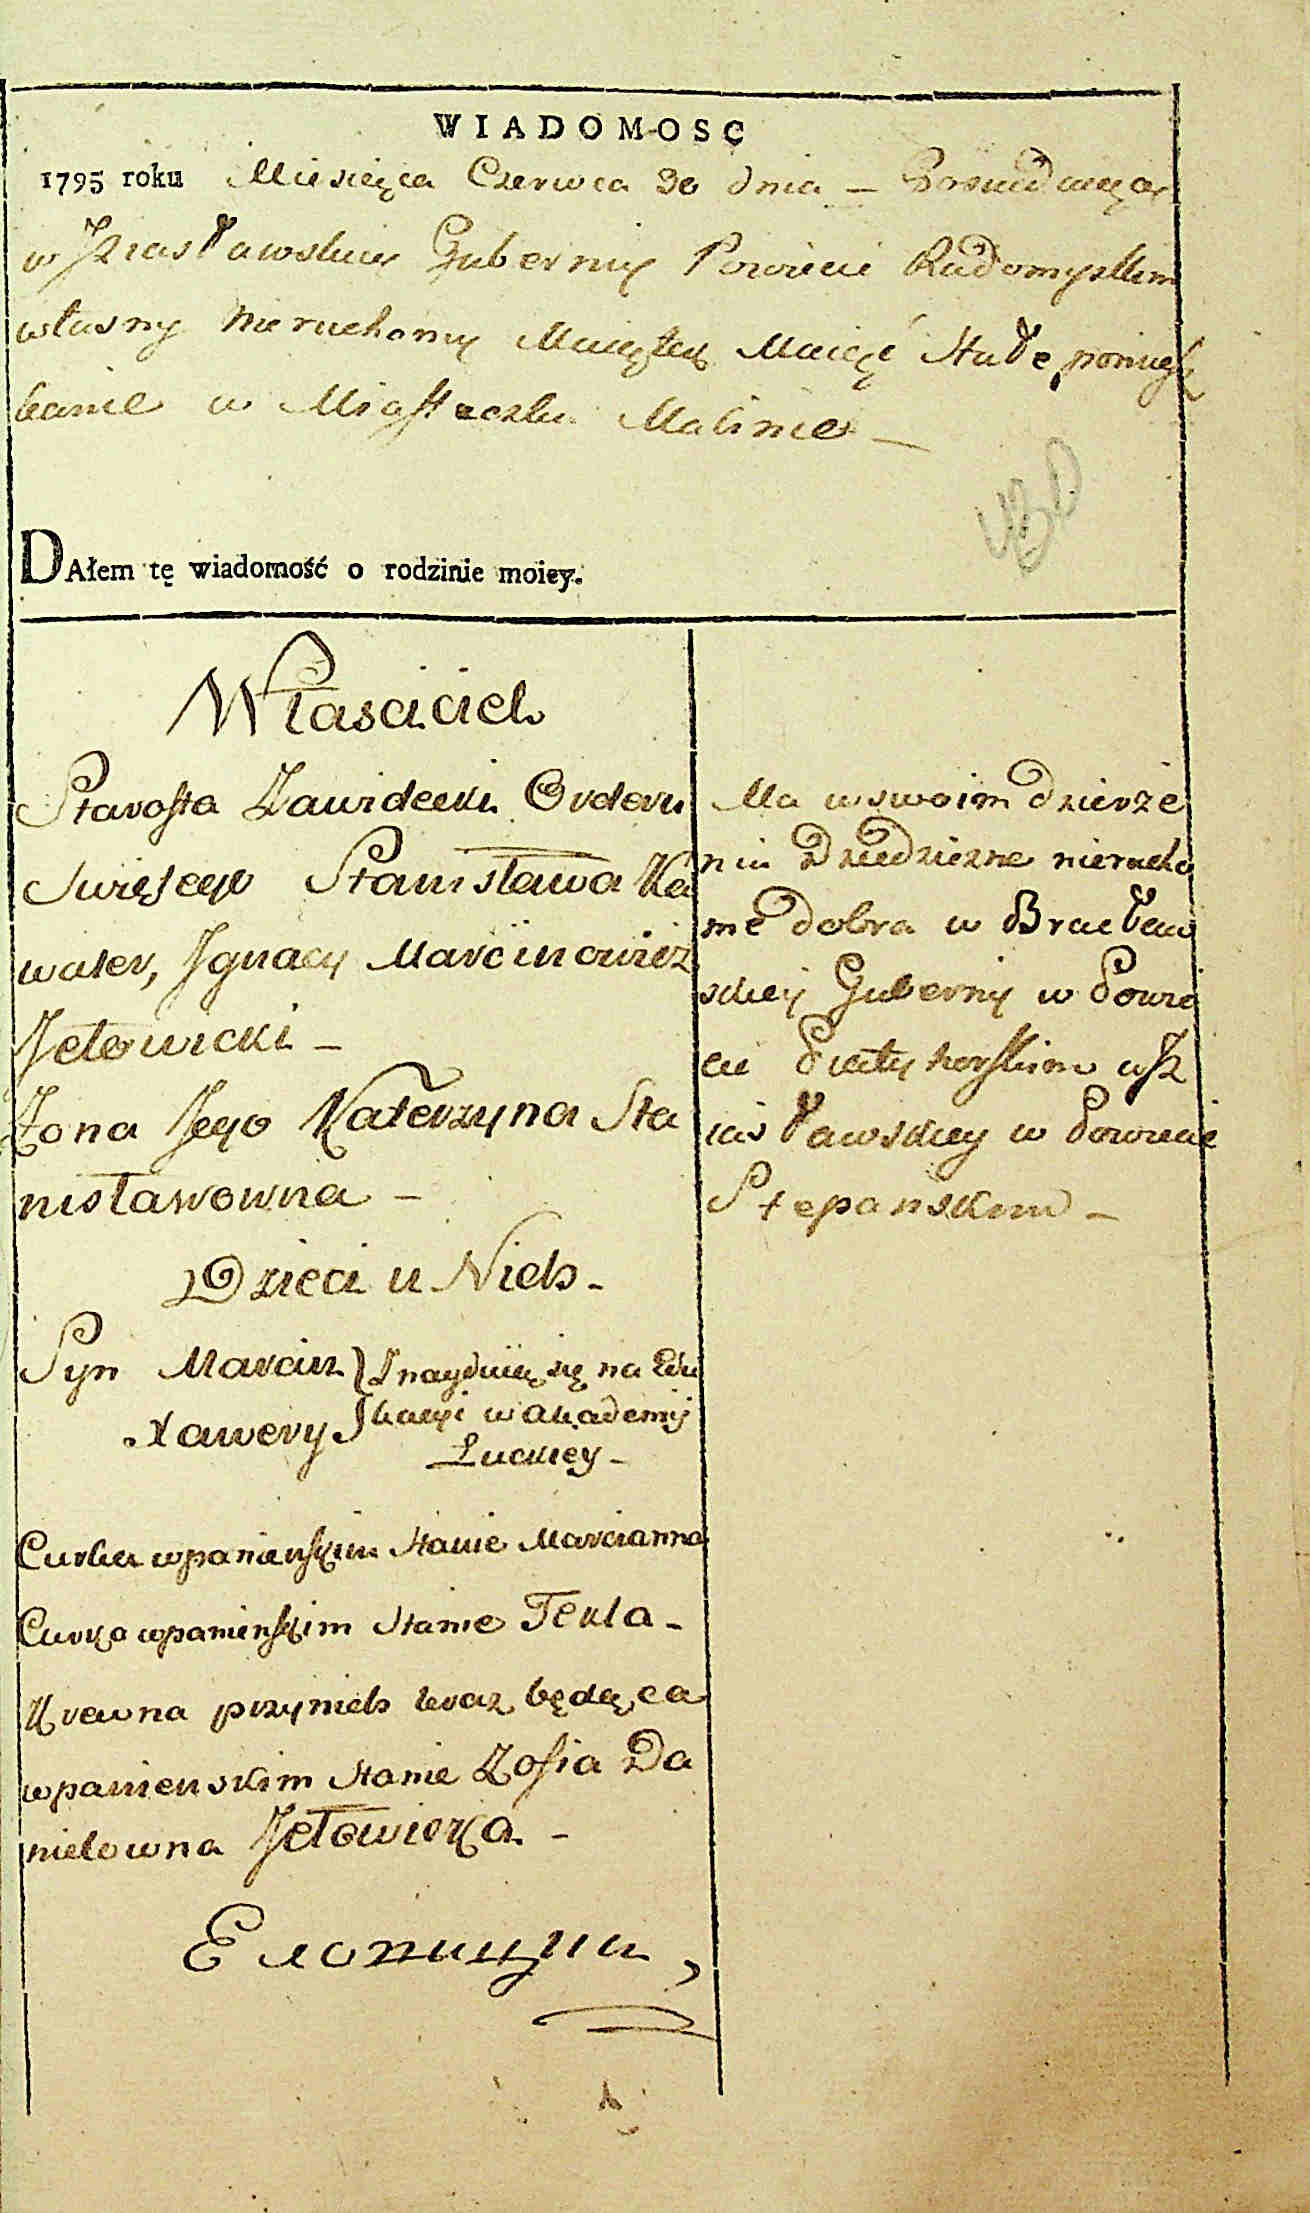 WIADOMOSC
1795 roku Miesięca Czerwca 30 dnia – Posiadaiący
w Jziasławskiey Gubernij Powiecie Radomyslkim
własny Nieruchomy Maiątek Maiąć Stałe pomiesz
kanie w Miasteczku Malinie –
DAłem tę wiadomość o rodzinie moiey.
Własciciel
Starosta Zawidecki Orderu
Swiętego Stanisława Ka
waler, Jgnacy Marcinowicz
Jełowicki –
Zona Jego Katerzyna Sta
nisławowna –
Dzieci u Nich –
Syn Marcin Znayduią się na Edu
Xawery kacyi w akademij
Łuckiey –
Curka w panienskim Stanie Marcianna
Curka w panienskim Stanie Tekla –
Krewna przy nich teraz będąca
w panienskim Stanie Zofia Da
nielowna Jełowicka –
Ma w swoim dzierże
niu Dziedziczne nierucho
me dobra w Bracław
skiey Gubernij w Powie
cie Piatyhorskim w Jz
iasławskiey w Powiecie
Stepanskim –